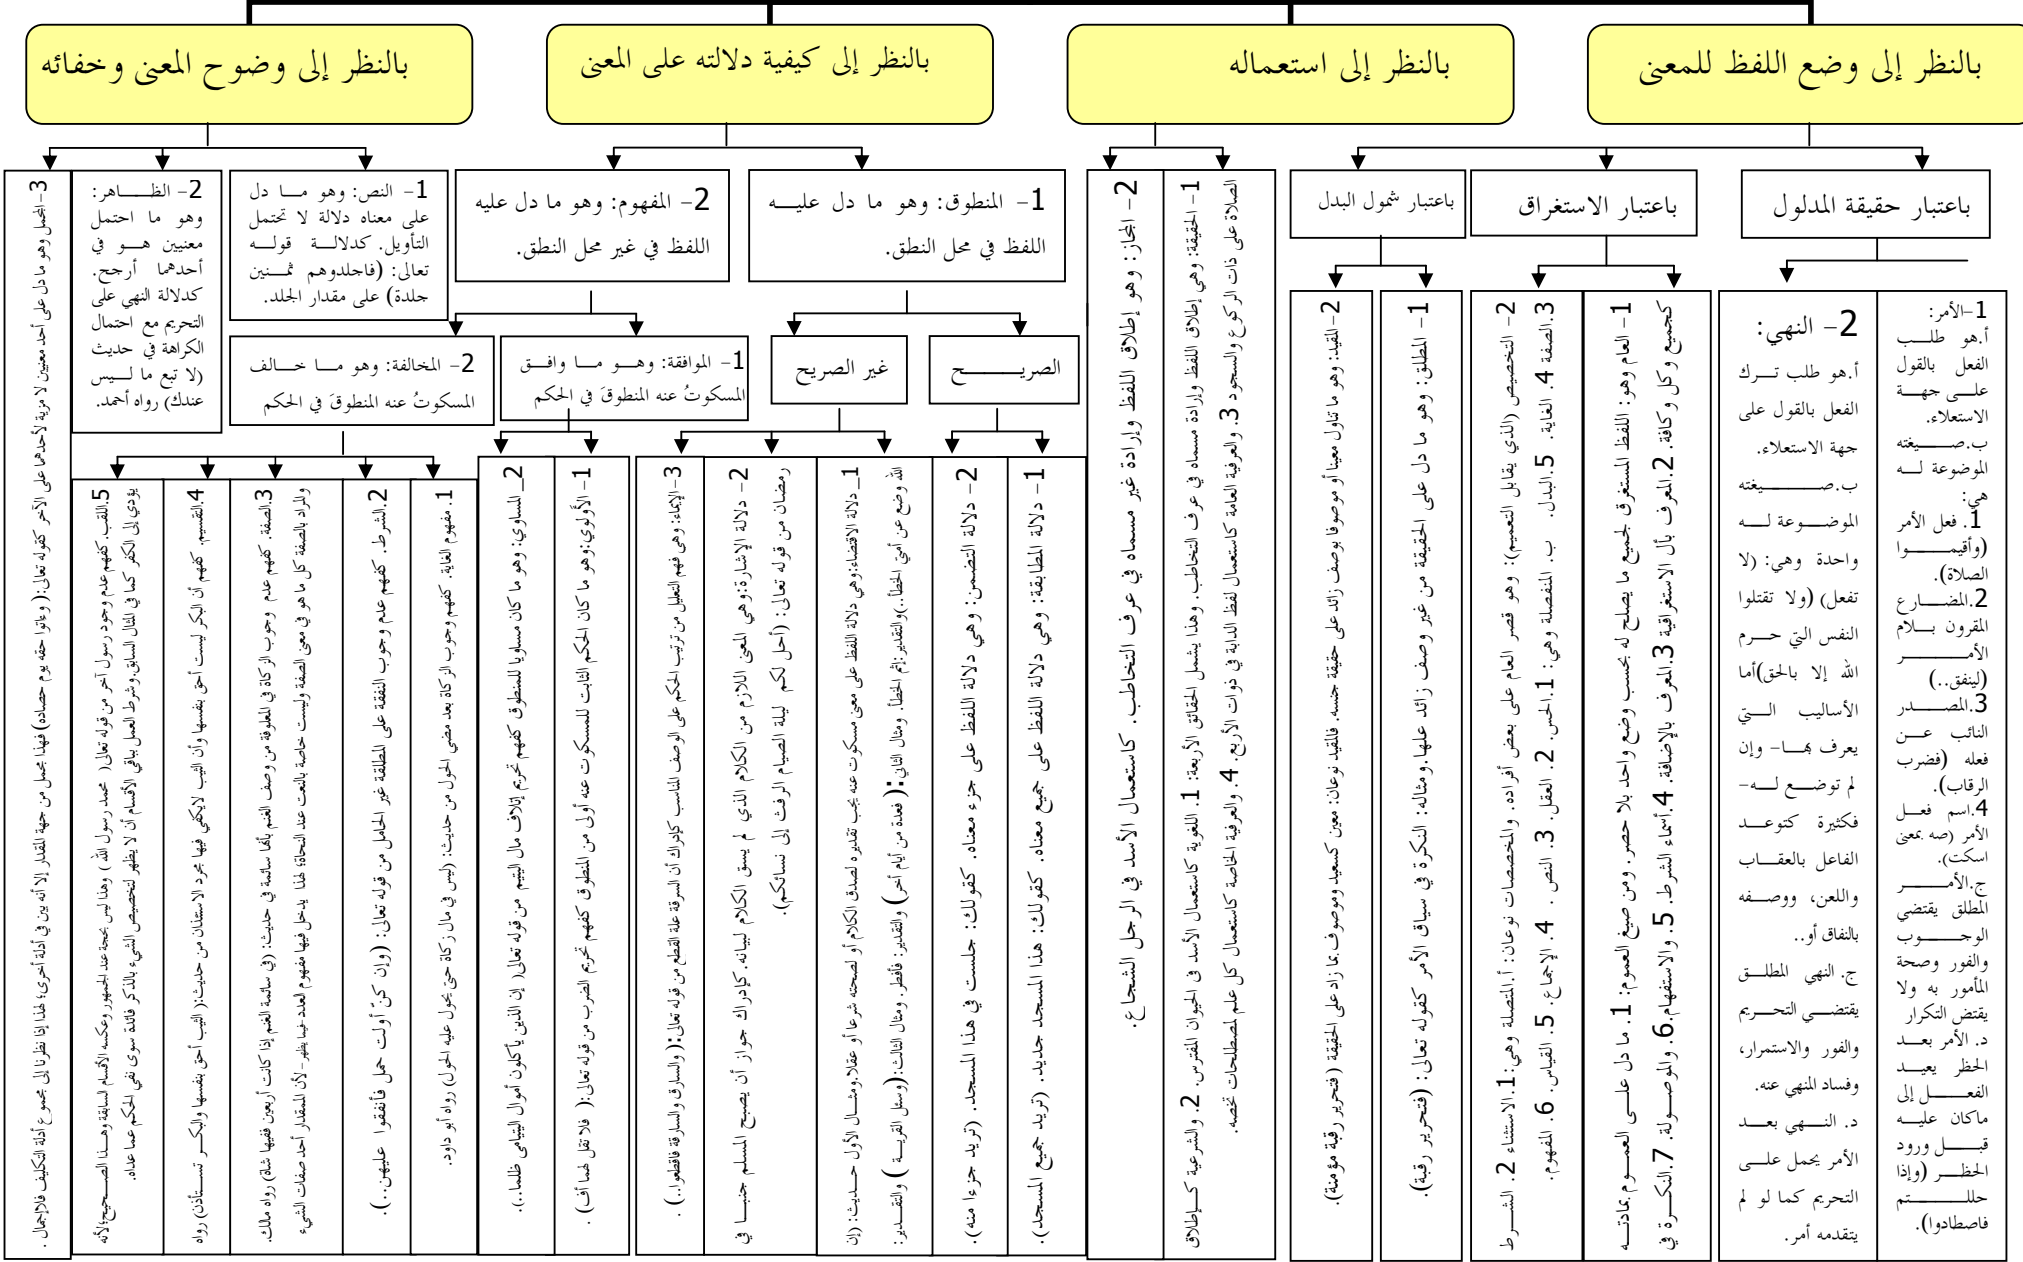 بالنظر إلى وضع اللفظ للمعنى
بالنظر إلى استعماله
بالنظر إلى كيفية دلالته على المعنى
بالنظر إلى وضوح المعنى وخفائه
باعتبار حقيقة المدلول
باعتبار الاستغراق
باعتبار شمول البدل
1-الأمر:
أ.هو طلب
الفعل بالقول
على جهة
الاستعلاء.
ب.صيغته
الموضوعة له
هي:
1. فعل الأمر
(وأقيموا
الصلاة).
2.المضارع
المقرون بلام
الأمر
(لينفق..)
3.المصدر
النائب عن
فعله (فضرب
الرقاب).
4.اسم فعل
الأمر (صه بمعنى
اسكت).
ج.الأمر
المطلق يقتضي
الوجوب
والفور وصحة
المأمور به ولا
يقتض التكرار
د. الأمر بعد
الحظر يعيد
الفعل إلى
ماكان عليه
قبل ورود
الحظر (وإذا
حللتم
فاصطادوا).
2- النهي:
أ.هو طلب ترك
الفعل بالقول على
جهة الاستعلاء.
ب.صيغته
الموضوعة له
واحدة وهي: (لا
تفعل) (ولا تقتلوا
النفس التي حرم
الله إلا بالحق)أما
الأساليب التي
يعرف بها- وإن
لم توضع له-
فكثيرة كتوعد
الفاعل بالعقاب
واللعن، ووصفه
بالنفاق أو..
ج. النهي المطلق
يقتضي التحريم
والفور والاستمرار،
وفساد المنهي عنه.
د. النهي بعد
الأمر يحمل على
التحريم كما لو لم
يتقدمه أمر.
1- العام وهو: اللفظ المستغرق لجميع ما يصلح له بحسب وضع واحد بلا حصر. ومن صيغ العموم: 1. ما دل على العموم بمادته
كجميع وكل وكافة. 2.المعرف بأل الاستغراقية 3.المعرف بالإضافة. 4.أسماء الشرط. 5. والاستفهام.6. والموصولة. 7.النكرة في
2- التخصيص (الذي يقابل التعميم): وهو قصر العام على بعض أفراده. والمخصصات نوعان: أ.المتصلة وهي:1.الاستثناء 2. الشرط
3.الصفة 4. الغاية. 5.البدل. ب. المنفصلة وهي: 1.الحس. 2. العقل. 3. النص . 4. الإجماع. 5. القياس. 6. المفهوم.
1- المطلق: وهو ما دل على الحقيقة من غير وصف زائد عليها.ومثاله: النكرة في سياق الأمر كقوله تعالى: (فتحرير رقبة).
2-المقيد: وهو ما تناول معينا أو موصوفا بوصف زائد على حقيقة جنسه. فالمقيد نوعان: معين كسعيد وموصوف بما زاد على الحقيقة ( فتحرير رقبة مؤمنة).
1- الحقيقة: وهي إطلاق اللفظ وإرادة مسماه في عرف التخاطب. وهذا يشمل الحقائق الأربعة: 1. اللغوية كاستعمال الأسد في الحيوان المفترس. 2. والشرعية كإطلاق
الصلاة على ذات الركوع والسجود 3. والعرفية العامة كاستعمال لفظ الدابة في ذوات الأربع. 4. والعرفية الخاصة كاستعمال كل علم لمصطلحات تخصه.
2- المجاز: وهو إطلاق اللفظ وإرادة غير مسماه في عرف التخاطب. كاستعمال الأسد في الرجل الشجاع.
1- المنطوق: وهو ما دل عليه
اللفظ في محل النطق.
2- المفهوم: وهو ما دل عليه
اللفظ في غير محل النطق.
الصريح
غير الصريح
1- دلالة المطابقة: وهي دلالة اللفظ على جميع معناه. كقولك: هذا المسجد جديد. (تريد جميع المسجد).
2- دلالة التضمن: وهي دلالة اللفظ على جزء معناه. كقولك: جلست في هذا المسجد. (تريد جزءا منه).
1_ دلالة الاقتضاء:وهي دلالة اللفظ على معنى مسكوت عنه يجب تقديره لصدق الكلام أو لصحته شرعا أو عقلا.ومثال الأول حديث: (إن
الله وضع عن أمتي الخطأ..)والتقدير:إثم الخطأ. ومثال الثاني:( فعدة من أيام أخر) والتقدير: فأفطر. ومثال الثالث:(وسئل القرية ) والتقدير:
2- دلالة الإشارة:وهي المعنى اللازم من الكلام الذي لم يسق الكلام لبيانه. كإدراك جواز أن يصبح المسلم جنبا في
رمضان من قوله تعالى: (أحل لكم ليلة الصيام الرفث إلى نسائكم).
3-الإيماء: وهي فهم التعليل من ترتيب الحكم على الوصف المناسب كإدراك أن السرقة علة القطع من قوله تعالى:( والسارق والسارقة فاقطعوا..) .
1- الموافقة: وهو ما وافق
المسكوتُ عنه المنطوقَ في الحكم
2- المخالفة: وهو ما خالف
المسكوتُ عنه المنطوقَ في الحكم
1- الأولوي:وهو ما كان الحكم الثابت للمسكوت عنه أولى من المنطوق كفهم تحريم الضرب من قوله تعالى:( فلا تقل لهما أف) .
2_ المساوي: وهو ما كان مساويا للمنطوق كفهم تحريم إتلاف مال اليتيم من قوله تعالى( إن الذين يأكلون أموال اليتيامى ظلما..).
1. مفهوم الغاية. كفهم وجوب الزكاة بعد مضي الحول من حديث: (ليس في مال زكاة حتى يحول عليه الحول) رواه أبو داود.
2.الشرط. كفهم عدم وجوب النفقة على المطلقة غير الحامل من قوله تعالى: (وإن كنّ أولت حمل فأنفقوا عليهن..).
3.الصفة. كفهم عدم وجوب الزكاة في المعلوفة من وصف الغنم بأنها سائمة في حديث: (في سائمة الغنم إذا كانت أربعين ففيها شاة) رواه مالك.
والمراد بالصفة كل ما هو في معنى الصفة وليست خاصة بالنعت عند النحاة؛ لهذا يدخل فيها مفهوم العدد فيما يظهر- لأن المقدار أحد صفات الشيء
4.التقسيم. كفهم أن البكر ليست أحق بنفسها وأن الثيب لايكفي فيها مجرد الاستئذان من حديث:( الثيب أحق بنفسها والبكر تستأذن) رواه
5.اللقب. كفهم عدم وجود رسول آخر من قوله تعالى( محمد رسول الله ) وهذا ليس بحجة عند الجمهور وعكسه الأقسام السابقة وهذا الصحيح؛لأنه
يؤدي إلى الكفر كما في المثال السابق.وشرط العمل بباقي الأقسام أن لا يظهر لتخصيص الشيء بالذكر فائدة سوى نفي الحكم عما عداه.
1- النص: وهو ما دل
على معناه دلالة لا تحتمل
التأويل. كدلالة قوله
تعالى: (فاجلدوهم ثمنين
جلدة) على مقدار الجلد.
2- الظاهر:
وهو ما احتمل
معنيين هو في
أحدهما أرجح.
كدلالة النهي على
التحريم مع احتمال
الكراهة في حديث
(لا تبع ما ليس
عندك) رواه أحمد.
3-المجمل وهو ما دل على أحد معنيين لا مزية لأحدهما على الآخر كقوله تعالى:( وءاتوا حقه يوم حصاده) فهذا مجمل من جهة المقدار إلا أنه بين في أدلة أخرى؛ لهذا إذا نظرنا إلى مجموع أدلة التكليف فلاإجمال .